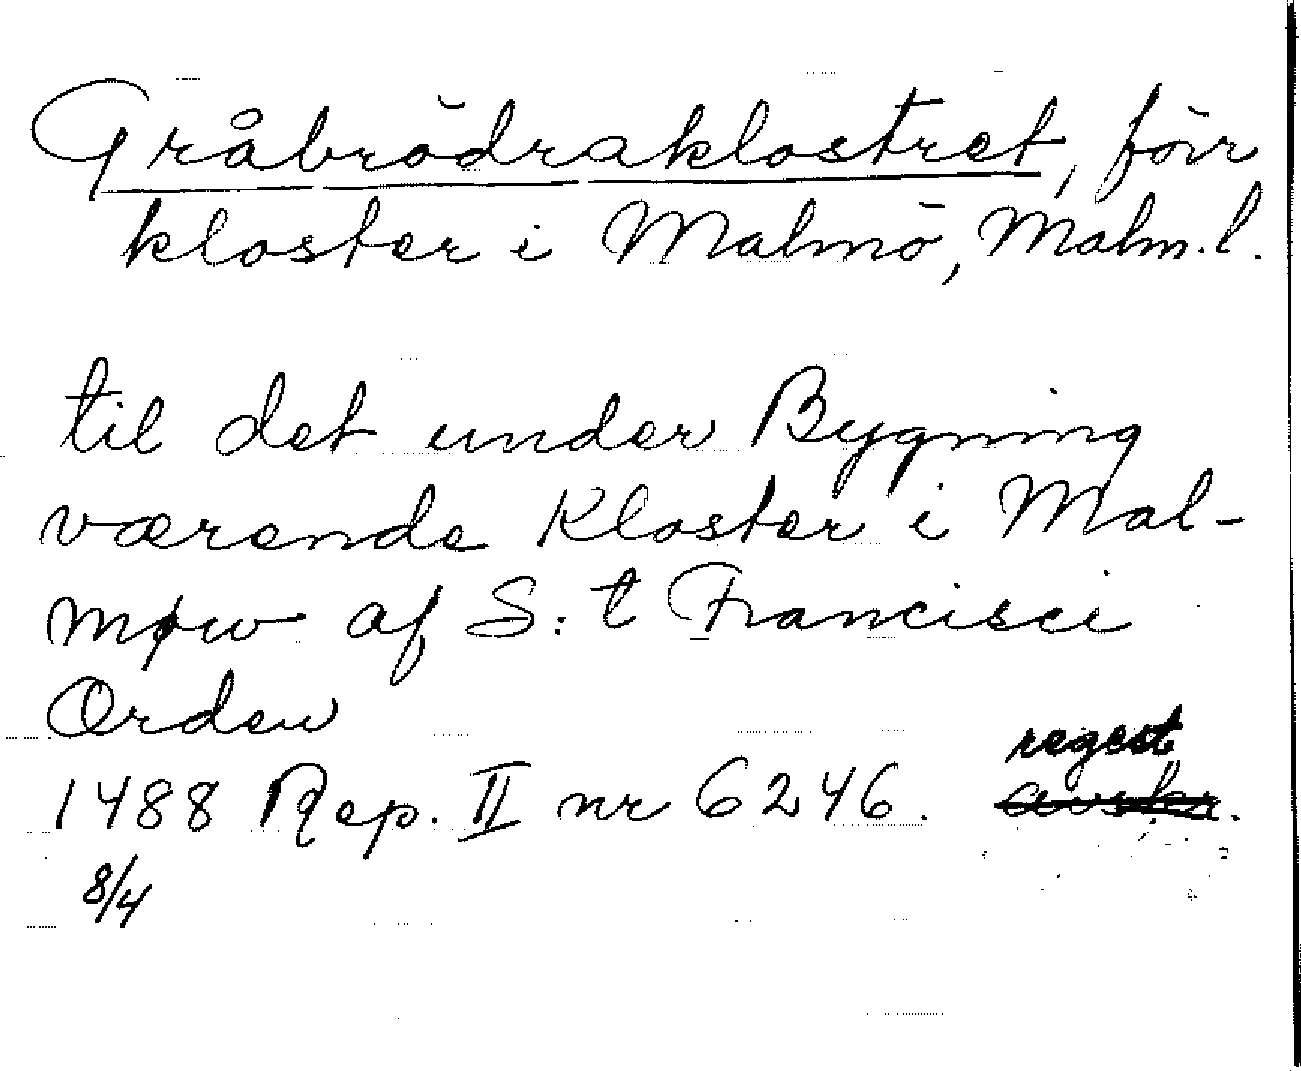 Gråbrödraklostret, förr
kloster i Malmö, Malm. l.
til det under Bygning
værende Kloster i Mal-
møw af S:t Francisci
Orden
regest
1488 Rep. II nr 6246. avskr.
8/4